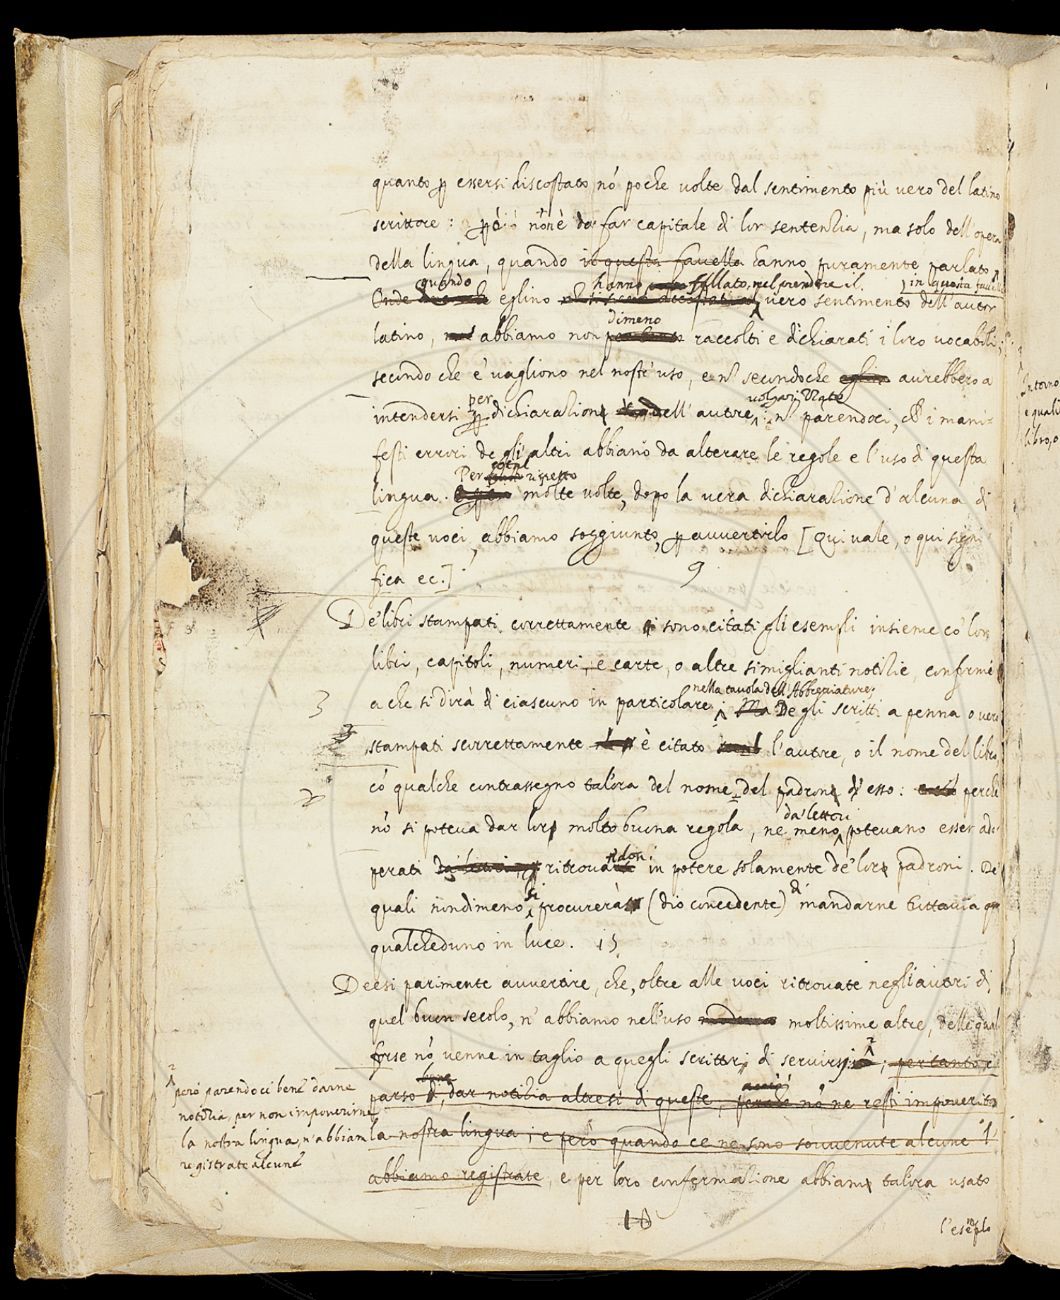 quanto ꝑ essersi discostato nō poche volte dal sentimento più vero del latino
scrittore: ꝑciò nōn è da far capitale di lor sentenzia, ma solo dell'opera
della lingua, quando in questa favella hanno puramente parlato
quando hanno fallato nel prendere il in questa favella
Onde eglino vero sentimento dell'autor
dimeno
latino, abbiamo non raccolti e dichiarati i loro vocaboli,
secondo che e' vagliono nel nostr'uso, e nō secondoche avrebbero a
per volgarizzato
intendersi ꝑ dichiarazione dell'autore; nō parendoci, chē i mani-
festi errori de gli altri abbiano da alterare le regole e l'uso di questa
Per rispetto
lingua. molte volte, dopo la vera dichiarazione d'alcuna di
queste voci, abbiamo soggiunto, ꝑ avvertirlo [Qui vale, o qui signi
fica ec.] 9
De' libri stampati correttamente si sono citati gli esempli insieme co' lor
libri, capitoli, numeri, e carte, o altre simiglianti notizie, conforme
nella tavola dell'Abbreviature
3 a che si dirà di ciascuno in particolare; Ma De gli scritti a penna o vero
stampati scorrettamente è citato l'autore, o il nome del libro
2 cō qualche contrassegno talora del nome del padrone d'esso: perchè
da' lettori
nō si poteva dar loro molto buona regola, ne meno potevano esser ado-
ndosi
perati ritrova in potere solamente de' loro padroni. De'
si di
quali nōndimeno procurerà (dio concedente) mandarne tuttavia
qualcheduno in luce. 15
Deesi parimente avvertire, che, oltre alle voci ritrovate negli autori di
quel buon secolo, n'abbiamo nell'uso moltissime altre, delle quali
forse nō venne in taglio a quegli scrittori di servirsi; pertanto ci
bene acciò
parso, dar notizia altresì di queste, nō ne resti impoverita
la nostra lingua; e però quando ce ne sono sovvenute alcune l'
abbiamo registrate, e per loro confermazione abbiamo talora usato
10
l'esēplo
però parendoci bene darne
notizia, per non impoverirne
la nostra lingua, n'abbiam
registrate alcune
Intorno
e quali
libro, o